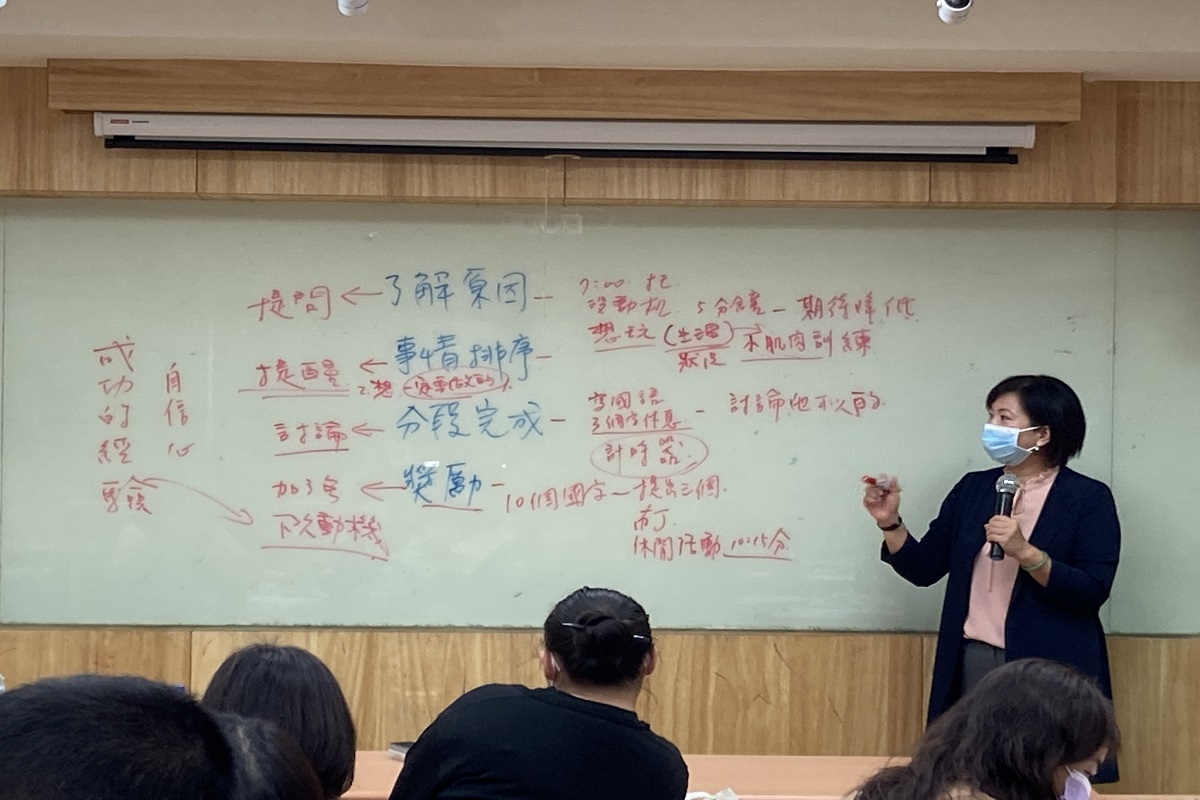 提問 ← 了解原因 — 7:00 起
沒動机 5分鐘 — 期待降低
想玩 (生理) → 不肌肉訓練
狀況
提醒 ← 事情排序 —
2.想 一定要做的
討論 ← 分段完成 — 寫國語
3個字休息 — 討論也可以的
計時器
加了兮 ← 獎勵 — 10個國字 — 提出三個
休閒活動 10:15分
下次動機
成功的經驗
自信心